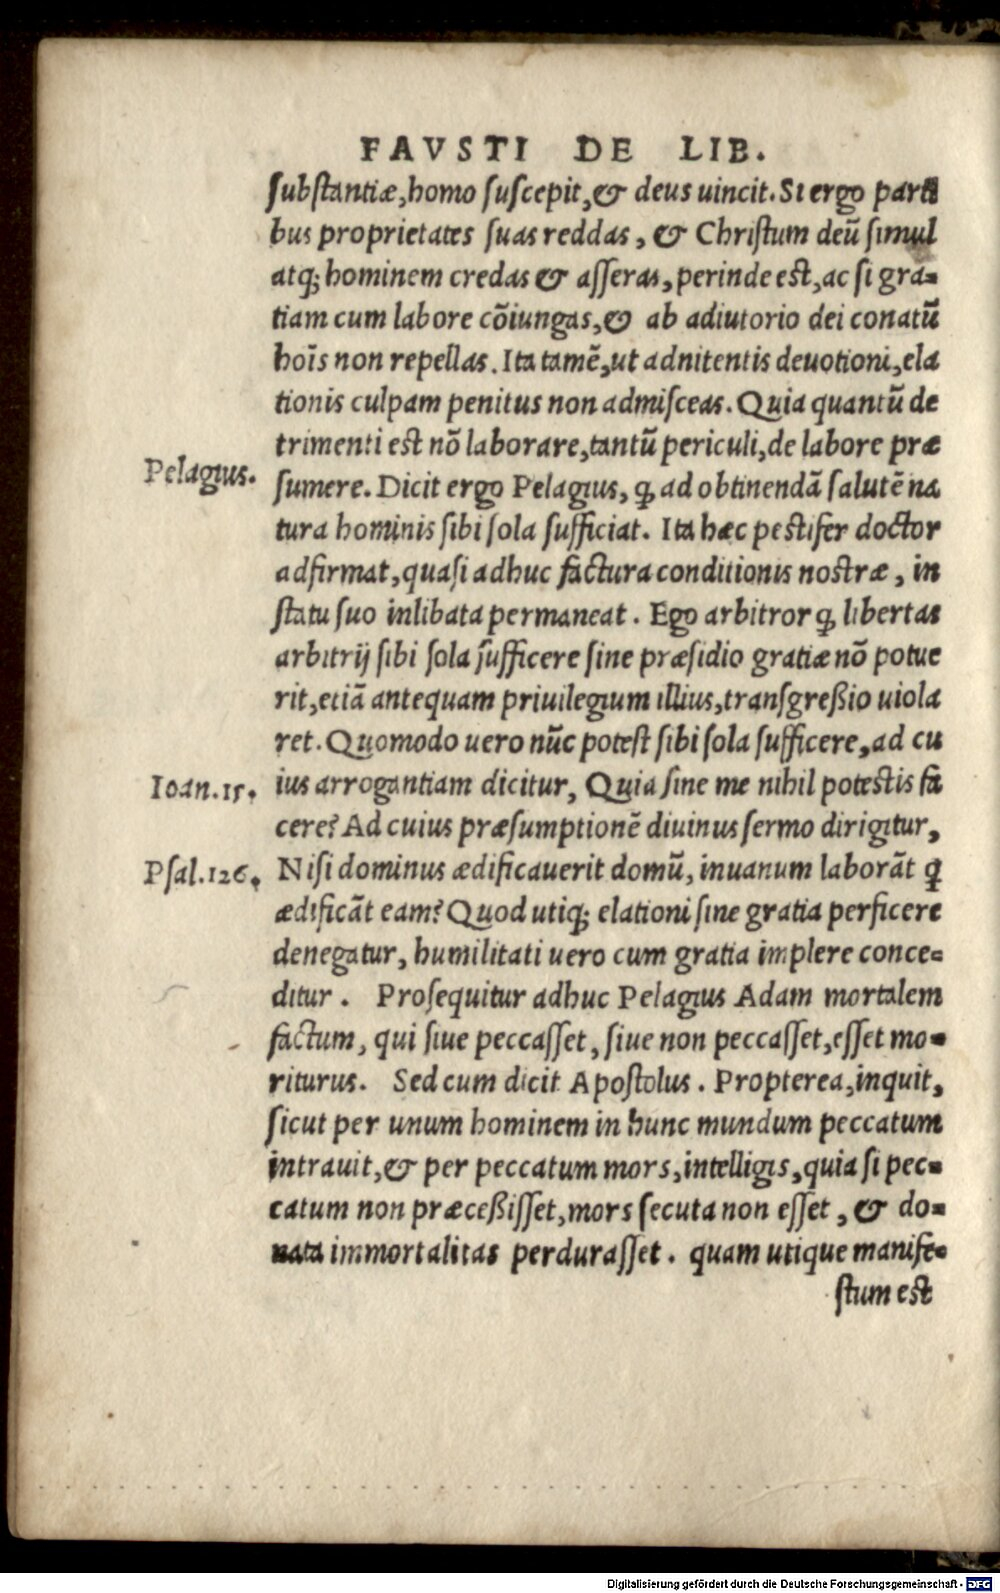 FAVSTI DE LIB.
substantiæ, homo suscepit, & deus uincit. Si ergo parti
bus proprietates suas reddas, & Christum deũ simul
atq; hominem credas & asseras, perinde est, ac si gra-
tiam cum labore cõiungas, & ab adiutorio dei conatũ
hoĩs non repellas. Ita tamẽ, ut adnitentis deuotioni, ela
tionis culpam penitus non admisceas. Quia quantũ de
trimenti est nõ laborare, tantũ periculi, de labore præ
Pelagius.
sumere. Dicit ergo Pelagius, ꝙ ad obtinendã salutẽ na
tura hominis sibi sola sufficiat. Ita hæc pestifer doctor
adfirmat, quasi adhuc factura conditionis nostræ, in
statu suo inlibata permaneat. Ego arbitror ꝙ libertas
arbitrij sibi sola sufficere sine præsidio gratiæ nõ potue
rit, etiã antequam priuilegium illius, transgreßio uiola
ret. Quomodo uero nũc potest sibi sola sufficere, ad cu
Ioan.15.
ius arrogantiam dicitur, Quia sine me nihil potestis fa
cere? Ad cuius præsumptionẽ diuinus sermo dirigitur,
Psal.126.
Nisi dominus ædificauerit domũ, inuanum laborãt q̃
ædificãt eam? Quod utiq; elationi sine gratia perficere
denegatur, humilitati uero cum gratia implere conce-
ditur. Prosequitur adhuc Pelagius Adam mortalem
factum, qui siue peccasset, siue non peccasset, esset mo-
riturus. Sed cum dicit Apostolus. Propterea, inquit,
sicut per unum hominem in hunc mundum peccatum
intrauit, & per peccatum mors, intelligis, quia si pec-
catum non præceßisset, mors secuta non esset, & do-
nata immortalitas perdurasset. quam utique manife-
stum est
Digitalisierung gefördert durch die Deutsche Forschungsgemeinschaft - DFG